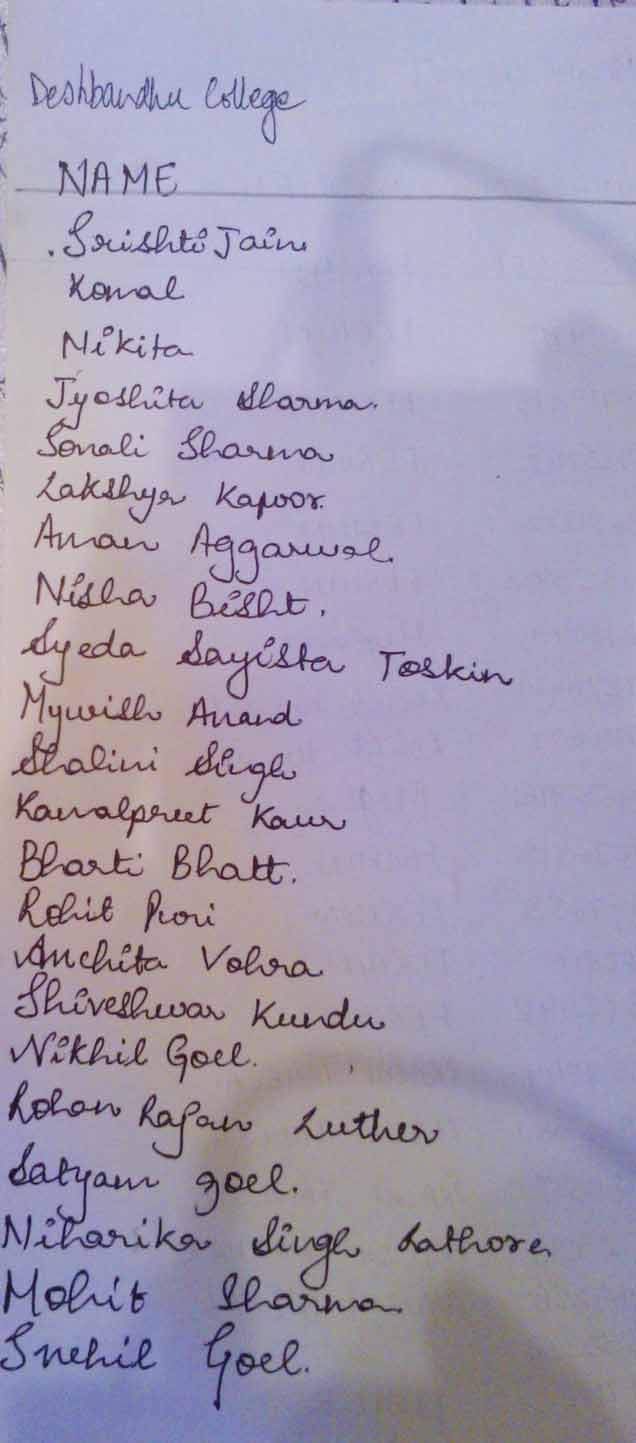 Deshbandhu College
NAME
. Srishti Jain
Komal
Nikita
Jyoshita Sharma.
Sonali Sharma
Lakshya Kapoor.
Aman Aggarwal.
Nisha Bisht.
Syeda Sayista Toskin
Mywish Anand
Shalini Singh
Kawalpreet Kaur
Bharti Bhatt.
Rohit Puri
Anchita Vohra
Shiveshwar Kundu
Nikhil Goel.
Rohan Rajan Luther
Satyam goel.
Niharika Singh Rathore
Mohit Sharma
Snehil Goel.